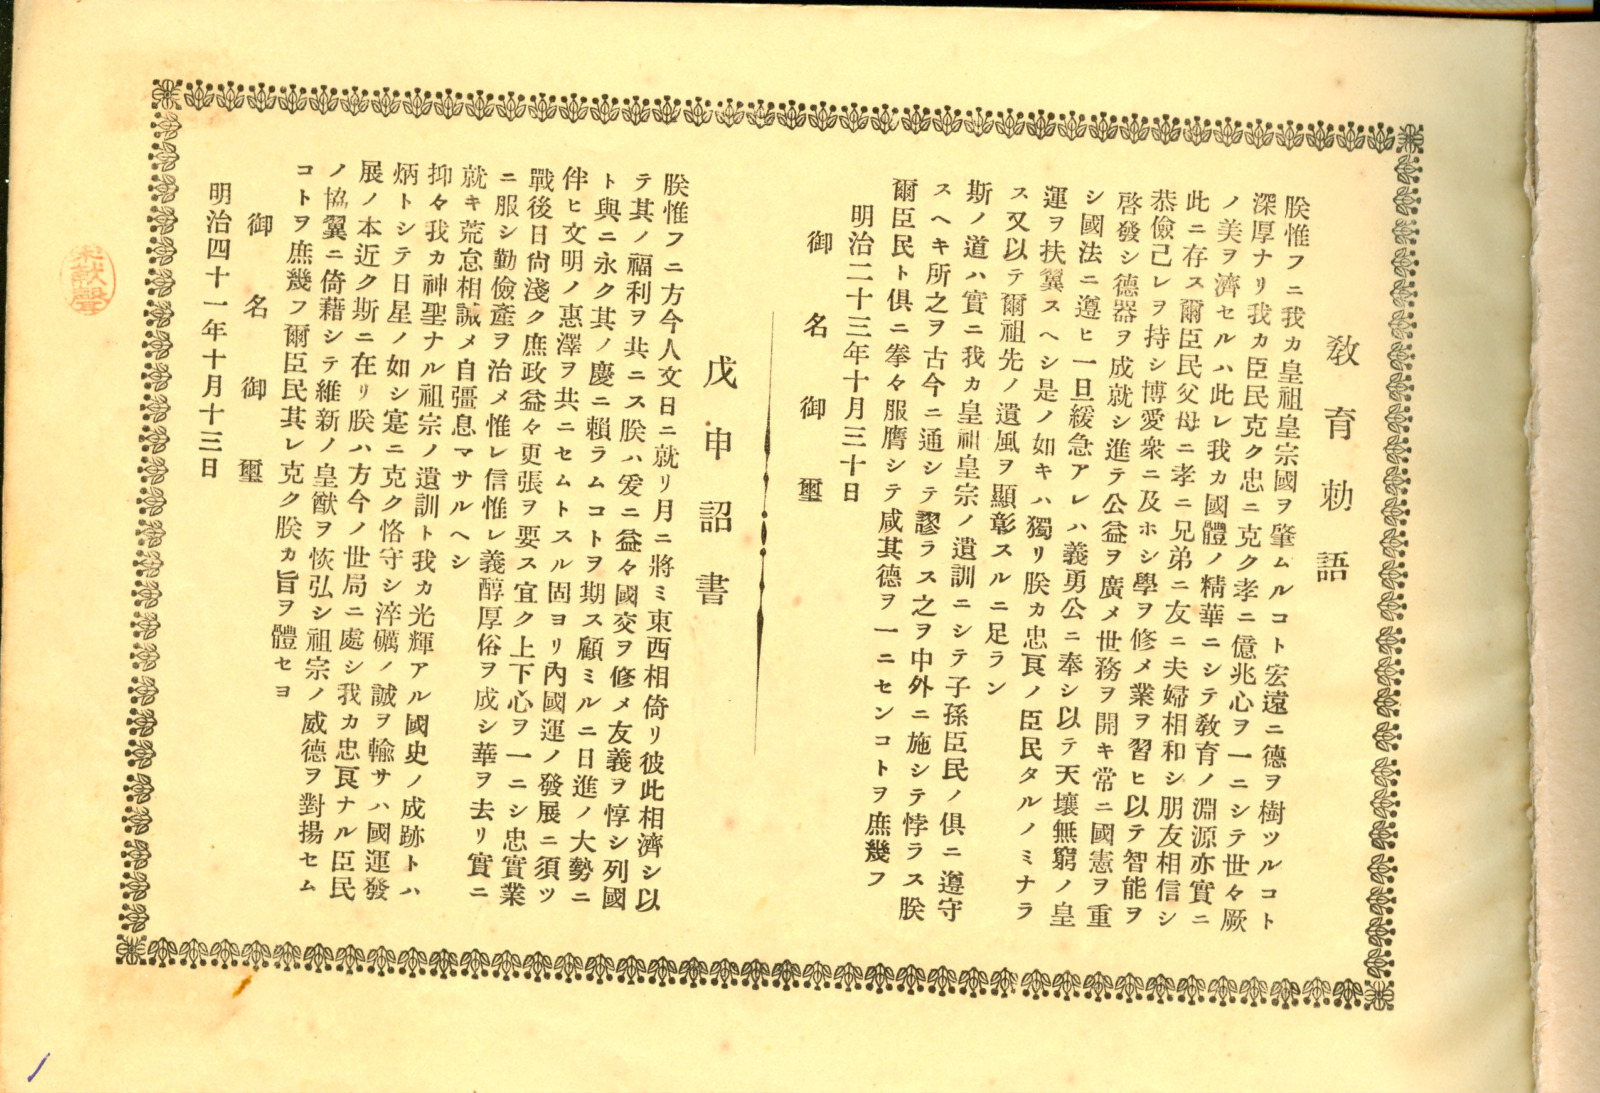 敎育勅語
朕惟フニ我カ皇祖皇宗國ヲ肇ムルコト宏遠ニ德ヲ樹ツルコト
深厚ナリ我カ臣民克ク忠ニ克ク孝ニ億兆心ヲ一ニシテ世々厥
ノ美ヲ濟セルハ此レ我カ國體ノ精華ニシテ敎育ノ淵源亦實ニ
此ニ存ス爾臣民父母ニ孝ニ兄弟ニ友ニ夫婦相和シ朋友相信シ
恭儉己レヲ持シ博愛衆ニ及ホシ學ヲ修メ業ヲ習ヒ以テ智能ヲ
啓發シ德器ヲ成就シ進テ公益ヲ廣メ世務ヲ開キ常ニ國憲ヲ重
シ國法ニ遵ヒ一旦緩急アレハ義勇公ニ奉シ以テ天壤無窮ノ皇
運ヲ扶翼スヘシ是ノ如キハ獨リ朕カ忠良ノ臣民タルノミナラ
ス又以テ爾祖先ノ遺風ヲ顯彰スルニ足ラン
斯ノ道ハ實ニ我カ皇祖皇宗ノ遺訓ニシテ子孫臣民ノ俱ニ遵守
スヘキ所之ヲ古今ニ通シテ謬ラス之ヲ中外ニ施シテ悖ラス朕
爾臣民ト俱ニ拳々服膺シテ咸其德ヲ一ニセンコトヲ庶幾フ
明治二十三年十月三十日
御名御璽
戊申詔書
朕惟フニ方今人文日ニ就リ月ニ將ミ東西相倚リ彼此相濟シ以
テ其ノ福利ヲ共ニス朕ハ爰ニ益々國交ヲ修メ友義ヲ惇シ列國
ト與ニ永ク其ノ慶ニ賴ラムコトヲ期ス顧ミルニ日進ノ大勢ニ
伴ヒ文明ノ惠澤ヲ共ニセムトスル固ヨリ內國運ノ發展ニ須ツ
戰後日尙淺ク庶政益々更張ヲ要ス宜ク上下心ヲ一ニシ忠實業
ニ服シ勤儉產ヲ治メ惟レ信惟レ義醇厚俗ヲ成シ華ヲ去リ實ニ
就キ荒怠相誡メ自彊息マサルヘシ
抑々我カ神聖ナル祖宗ノ遺訓ト我カ光輝アル國史ノ成跡トハ
炳トシテ日星ノ如シ寔ニ克ク恪守シ淬礪ノ誠ヲ輸サハ國運發
展ノ本近ク斯ニ在リ朕ハ方今ノ世局ニ處シ我カ忠良ナル臣民
ノ協翼ニ倚藉シテ維新ノ皇猷ヲ恢弘シ祖宗ノ威德ヲ對揚セム
コトヲ庶幾フ爾臣民其レ克ク朕カ旨ヲ體セヨ
御名御璽
明治四十一年十月十三日